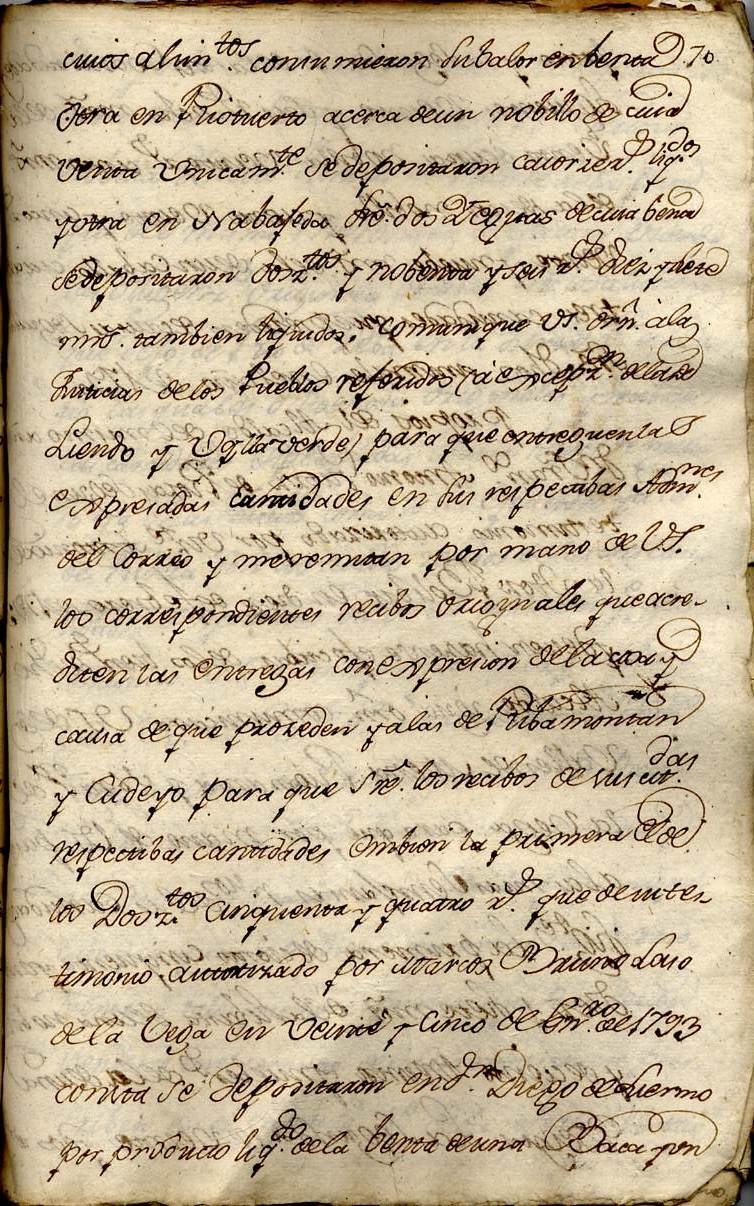 cuios alim.tos consumieron su balor en benta 70
Otra en Riotuerto acerca de un nobillo de cuia
Venta Unicam.te se depositaron catorze r.s liq.dos
y otra en Nabajeda s̃re. dos Yeguas de cuia benta
se depositaron dosz.tos y nobenta y seis r.s diez y siete
mrs. tambien liquidos. Comunique VS. orñ. à las
Justicias de los Pueblos referidos (à excepz.on de las de
Liendo y Vqllaverde) para que entreguen las
expresadas cantidades en sus respectibas Adm.nes
del Correo y me remitan por mano de VS.
los correspondientes recibos originales que acre-
diten las entregas con expresion de la cosa y
causa de que prozeden y a las de Ribamontan
y Cudeyo para que s̃re. los recibos de sus cit.das
respectibas cantidades embien la primera el de
los Dosz.tos cinquenta y quatro r.s que de un tes-
timonio autorizado por Marcos Bruno Laso
de la Vega en Veinte y Cinco de En.ro de 1793
consta se depositaron en d.n Diego de Lierno
por producto liq.do de la benta de una Baca pen